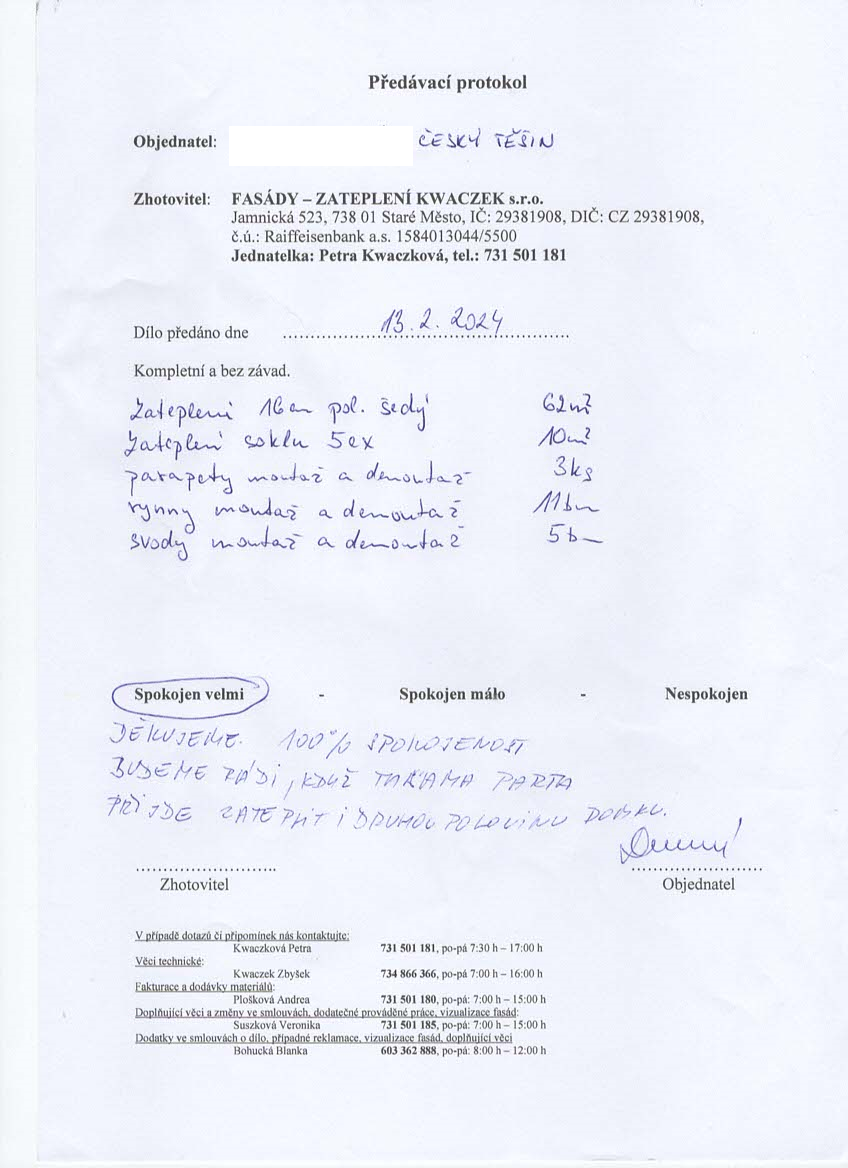 Předávací protokol
Objednatel: ČESKÝ TĚŠÍN
Zhotovitel: FASÁDY – ZATEPLENÍ KWACZEK s.r.o.
Jamnická 523, 738 01 Staré Město, IČ: 29381908, DIČ: CZ 29381908,
č.ú.: Raiffeisenbank a.s. 1584013044/5500
Jednatelka: Petra Kwaczková, tel.: 731 501 181
Dílo předáno dne 13.2.2024
Kompletní a bez závad.
Zateplení 16cm pol. šedý 62m²
Zateplení soklu 5ex 10m²
parapety montaž a demontaž 3ks
rynny montaž a demontaž 11bm
svody montaž a demontaž 5bm
Spokojen velmi - Spokojen málo - Nespokojen
DĚKUJEME. 100% SPOKOJENOST
BUDEME RÁDI, KDYŽ PARTA
PŘIJDE ZATEPLIT I DRUHOU POLOVINU DOMKU.
Zhotovitel Objednatel
V případě dotazů či připomínek nás kontaktujte:
Kwaczková Petra 731 501 181, po-pá 7:30 h – 17:00 h
Věci technické:
Kwaczek Zbyšek 734 866 366, po-pá 7:00 h – 16:00 h
Fakturace a dodávky materiálů:
Plošková Andrea 731 501 180, po-pá: 7:00 h – 15:00 h
Doplňující věci a změny ve smlouvách, dodatečné prováděné práce, vizualizace fasád:
Suszková Veronika 731 501 185, po-pá: 7:00 h – 15:00 h
Dodatky ve smlouvách o dílo, případné reklamace, vizualizace fasád, doplňující věci
Bohucká Blanka 603 362 888, po-pá: 8:00 h – 12:00 h